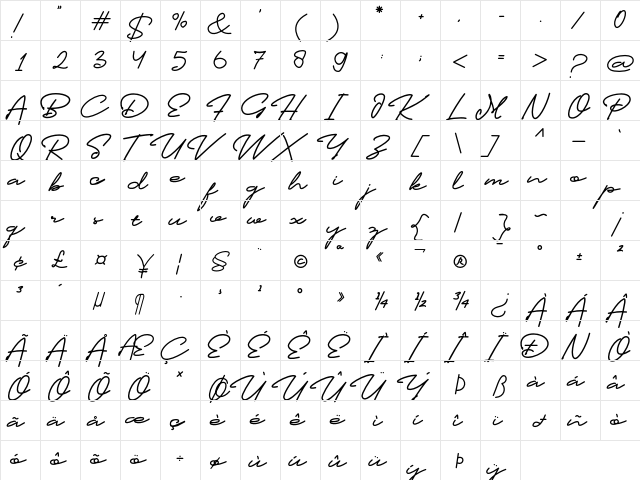 ! " # $ % & ' ( ) * + , - . / 0
1 2 3 4 5 6 7 8 9 : ; < = > ? @
A B C D E F G H I J K L M N O P
Q R S T U V W X Y Z [ \ ] ^ _ `
a b c d e f g h i j k l m n o p
q r s t u v w x y z { | } ~ ¡
¢ £ ¤ ¥ ¦ § ¨ © ª « ¬ ® ¯ ° ± ²
³ ´ µ ¶ · ¸ ¹ º » ¼ ½ ¾ ¿ À Á Â
Ã Ä Å Æ Ç È É Ê Ë Ì Í Î Ï Ð N Ò
Ó Ô Õ Ö × Ø Ù Ú Û Ü Ý Þ ß à á â
ã ä å æ ç è é ê ë ì í î ï ð ñ ò
ó ô õ ö ÷ ø ù ú û ü ý þ ÿ